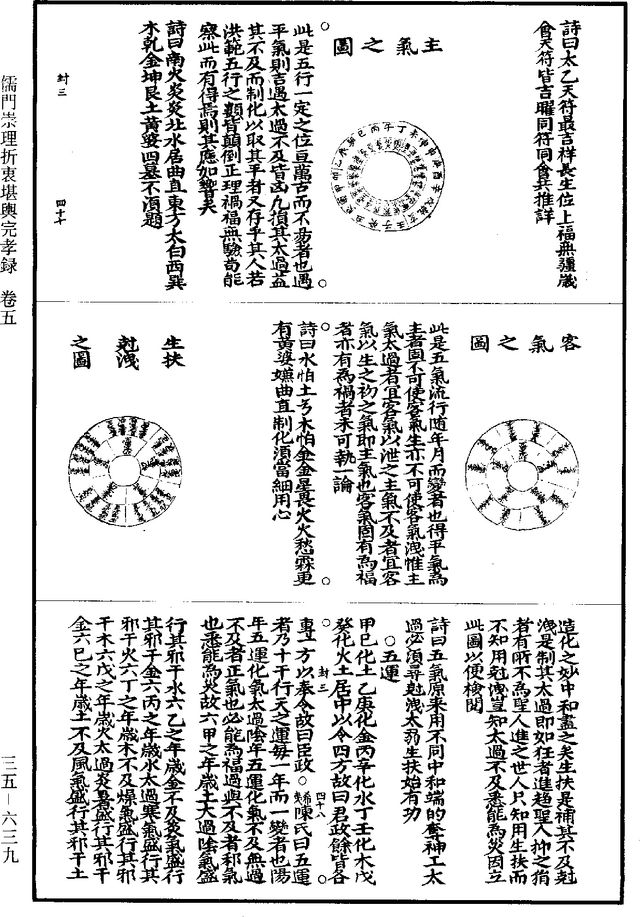 詩曰太乙天符最吉祥長生位上福無疆歲
會天符皆吉曜同符同會共推詳
主氣之圖
此是五行一定之位亘萬古而不易者也遇
平氣則吉遇太過不及皆凶凡須其太過益
其不及而制化以取其平者又存乎其人若
洪範五行之類皆顛倒正理禍福無驗苟能
察此而有得焉則其應如響矣
詩曰南火炎炎北水居曲直東方太白西巽
木乾金坤艮土黃婆四墓不須題
封三
四十七
客氣之圖
此是五氣流行隨年月而變者也得平氣為
主者固不可使客氣生亦不可使客氣洩惟主
氣太過者宜客氣以泄之主氣不及者宜客
氣以生之初之氣即主氣也客氣固有為福
者亦有為禍者未可執一論
詩曰水怕土兮木怕金金星畏火火愁霖更
有黃婆嫌曲直制化須當細用心
生扶
尅洩
之圖
造化之妙中和盡之矣生扶是補其不及尅
洩是制其太過即如狂者進趨聖人抑之狷
者有所不為聖人進之世人只知用生扶而
不知用尅洩豈知太過不及悉能為災因立
此圖以便檢閱
詩曰五氣原來用不同中和端的奪神工太
過必須尋尅洩太弱生扶始有功
○五運
甲巳化土乙庚化金丙辛化水丁壬化木戊
癸化火土居中以令四方故曰君政餘皆各
專一方以奉令故曰臣政○陳氏曰五運
封三
四十八
者乃十干行天之運每一年而一變者也陽
年五運化氣太過陰年五運化氣不及無過
不及者正氣也必能為福過與不及者邪氣
也悉能為災故六甲之年歲土太過陰氣盛
行其邪干水六乙之年歲金不及炎氣盛行
其邪干金六丙之年歲水太過寒氣盛行其
邪干火六丁之年歲木不及燥氣盛行其邪
干木六戊之年歲火太過炎暑盛行其邪干
金六巳之年歲土不及風氣盛行其邪干土
儒門崇理折衷堪輿完孝録 卷五
三五－六三九